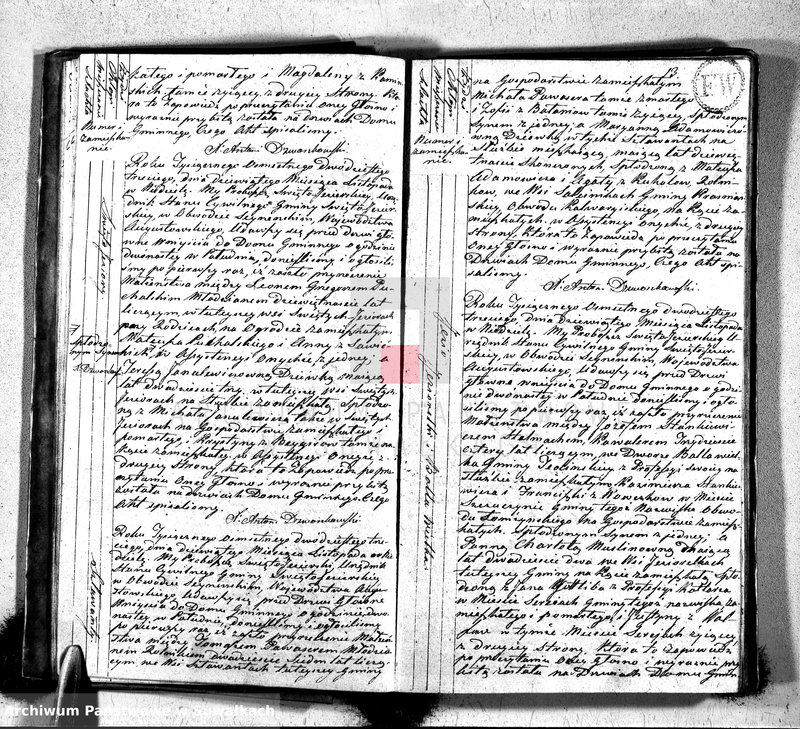 kałego i pomarłego i Magdaleny z Kamiń
skich tamże żyjącey, z drugiey Strony. Któ
ra to Zapowiedź po przeczytaniu oney głośno i
wyraźnie przybita została na drzwiach Domu
Gminnego, Czego Akt spisaliśmy.
X. Antoni Dzwonkowski.
Roku Tysiącznego Osmsetnego Dwudziestego
trzeciego, Dnia dziewiątego Miesiąca Listopada
w Niedzielę. My Proboszcz Swięto Jezierski, Urzę
dnik Stanu Cywilnego Gminy Swięto Jezier
skiey, w Obwodzie Seyneńskim, Województwa
Augustowskiego, Udawszy się przed drzwi głó
wne wnyiścia do Domu Gminnego o godzinie
dwunastey w Południe, donieśliśmy i ogłosili
śmy po pierwszy raz, iż zaszło przyrzeczenie
Małżeństwa między Leonem Grzegorzem Pu
chalskim Młodzianem dziewiętnaście lat
liczącym, w tuteyszey wsi Swiętych Jeziorach
przy Rodzicach na Ogrodzie zamieszkałym
Mateusza Puchalskiego i Anny z Sawic
kich, w Assystencyi Onychże z jedney; a
Teresą Janulewiczowną Dziewką mającą
lat dwadzieścia trzy, w tuteyszey wsi Swiętych
Jeziorach na Służbie zamieszkałą, Spłodzo
ną z Michała Janulewicza także w Swiętych
Jeziorach na Gospodarstwie zamieszkałego i
pomarłego, Krystyny z tamże na
Kącie zamieszkałey, w Assystencyi Oneyże z
drugiey Strony, która to Zapowiedź po prze
czytaniu Oney Głośno i wyraźnie przybita
została na drzwiach Domu Gminnego. Czego
Akt spisaliśmy.
X. Antoni Dzwonkowski.
Roku Tysiącznego Osmsetnego dwudziestego trze
ciego, dnia dziewiątego Miesiąca Listopada w Nie
dzielę. My Proboszcz Swięto Jezierski, Urzędnik
Stanu Cywilnego Gminy Swięto Jezierskiey,
w Obwodzie Seyneńskim, Województwa Augu
stowskiego, Udawszy się przed Drzwi Główne
wnyiścia do Domu Gminnego, o godzinie dwu
nastey w Południe, donieśliśmy i ogłosiliśmy
po pierwszy raz, iż zaszło przyrzeczenie Małżeń
stwa między Tomaszem Pawaserem Młodzia
nem Rolnikiem dwadzieścia siedm lat liczą
cym, we Wsi Sztawantach tuteyszey Gminy
Numer i
zamieszka
nie.
Swięto Jeziory
Sztawanty
13.
FW
na Gospodarstwie zamieszkałym
Michała Pawasera tamże zmarłego
i Zofii z Balamów tamże żyjącey, Spłodzonym
Synem z jedney; a Maryanną Adamowiczó
wną Dziewką w tychże Sztawantach na
Służbie mieszkającą, mającą lat dziewięt
naście skończonych, Spłodzoną z Mateusza
Adamowicza i Agaty z Rolni
ków, we Wsi Gminy Krasnow
skiey, Obwodu Kalwaryiskiego na Kącie za
mieszkałych, w Assystencyi onychże, z drugiey
strony. Która to Zapowiedź po przeczytaniu
Oney Głośno i wyraźnie przybita została na
Drzwiach Domu Gminnego. Czego Akt spi
saliśmy.
X. Antoni Dzwonkowski.
Roku Tysiącznego Osmsetnego dwudziestego
trzeciego, Dnia dziewiątego Miesiąca Listopada
w Niedzielę. My Proboszcz Swięto Jezierski U
rzędnik Stanu Cywilnego Gminy Swięto Jezier
skiey, w Obwodzie Seyneńskim, Województwa
Augustowskiego, Udawszy się przed Drzwi
Główne wnyiścia do Domu Gminnego, o godzi
nie dwunastey w Południe donieśliśmy i ogło
siliśmy po pierwszy raz, iż zaszło przyrzeczenie
Małżeństwa między Jozefem Stankiewi
czem Stelmachem, Kawalerem trzydzieście
cztery lat liczącym, we Dworze
Gminy z Professyi Swoiey na
Służbie zamieszkałym, Kazimierza Stankie
wicza i Franciszki z w Mieście
Szczuczynie Gminy tegoż Nazwiska Obwo
du Łomżyńskiego na Gospodarstwie zamiesz
kałych, Spłodzonym Synem z jedney, a
Panną Charlottą Muslinowną mającą
lat dwadzieścia dwa we Wsi
tuteyszey Gminy na Kącie zamieszkałą, Spło
dzoną z Jana Gottliba z Professyi Kotlarza
w Mieście Serejach Gminy tegoż nazwiska za
mieszkałego i pomarłego, i Justyny z
w tymże Mieście Serejach żyjącey,
z drugiey Strony. Która to Zapowiedź
po przeczytaniu Oney Głośno i wyraźnie przy
bita została na Drzwiach Domu Gmin
Numer i
zamieszka
nie.
Archiwum Państwowe w Suwałkach